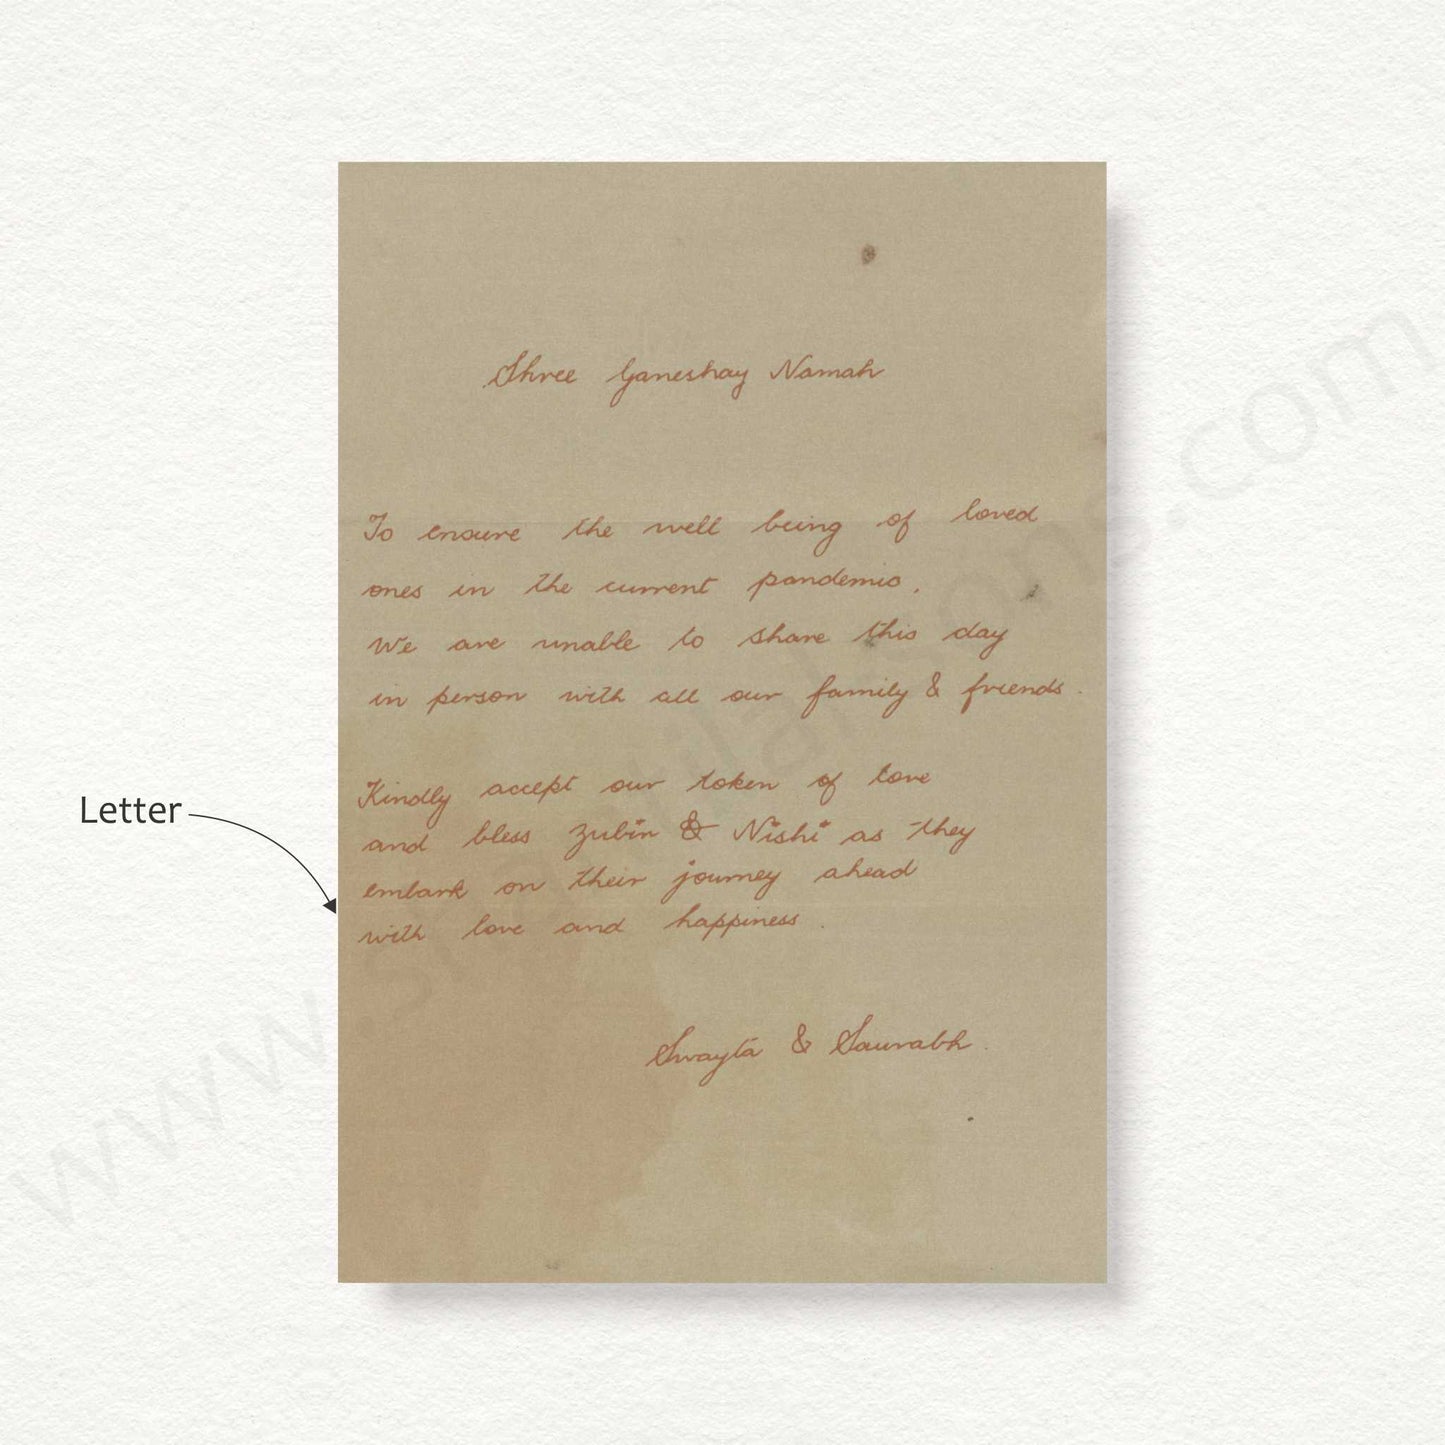 Shree Ganeshay Namah
To ensure the well being of loved
ones in the current pandemic.
We are unable to share this day
in person with all our family & friends.
Kindly accept our token of love
and bless Zubin & Nishi as they
embark on their journey ahead
with love and happiness.
Swayta & Saurabh.
Letter